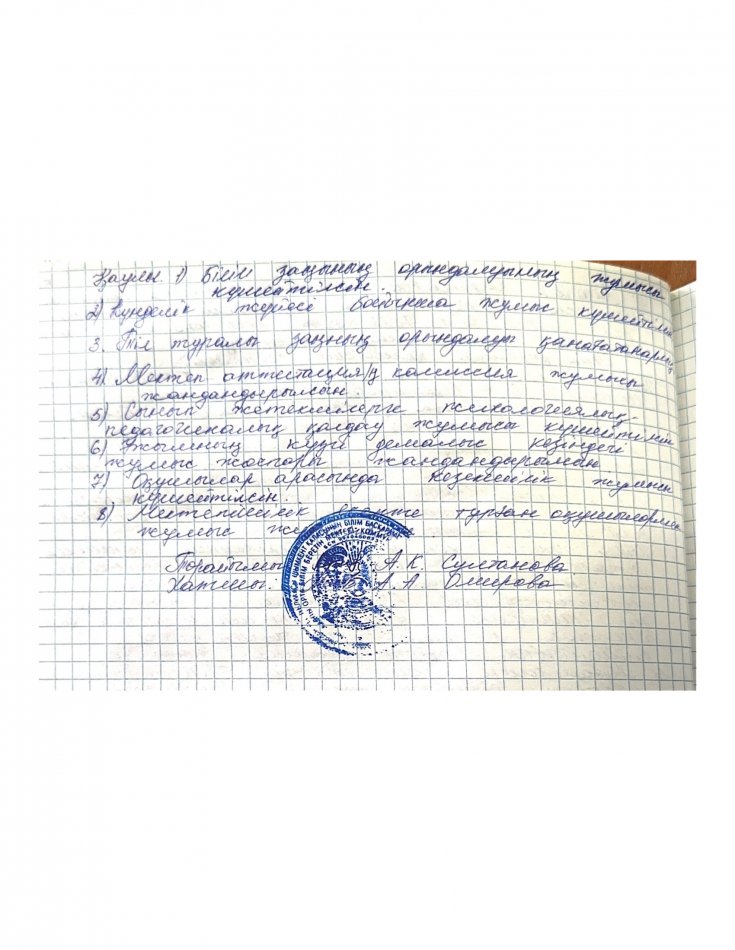 Қаулы. 1) Білім заңының орындалуының жұмысы
күшейтілсін.
2) Күнделік жүйесі бойынша жұмыс күшейтілсін
3. Тіл туралы заңның орындалуы қанағатанарлық
4) Мектеп аттестация/қ комиссия жұмысы
жандандырылсын.
5) Сынып жетекшілерге психологиялық-
педагогикалық қолдау жұмысы күшейтілсін
6) Ұжымның күзгі демалыс кезіндегі
жұмыс жоспары жандандырылсын
7) Оқушылар арасында кезекшілік жұмысы
күшейтілсін.
8) Мектепішілік есепте тұрған оқушылармен
жұмыс
Төрайымы: А.К. Султанова
Хатшы: А.А Омирова